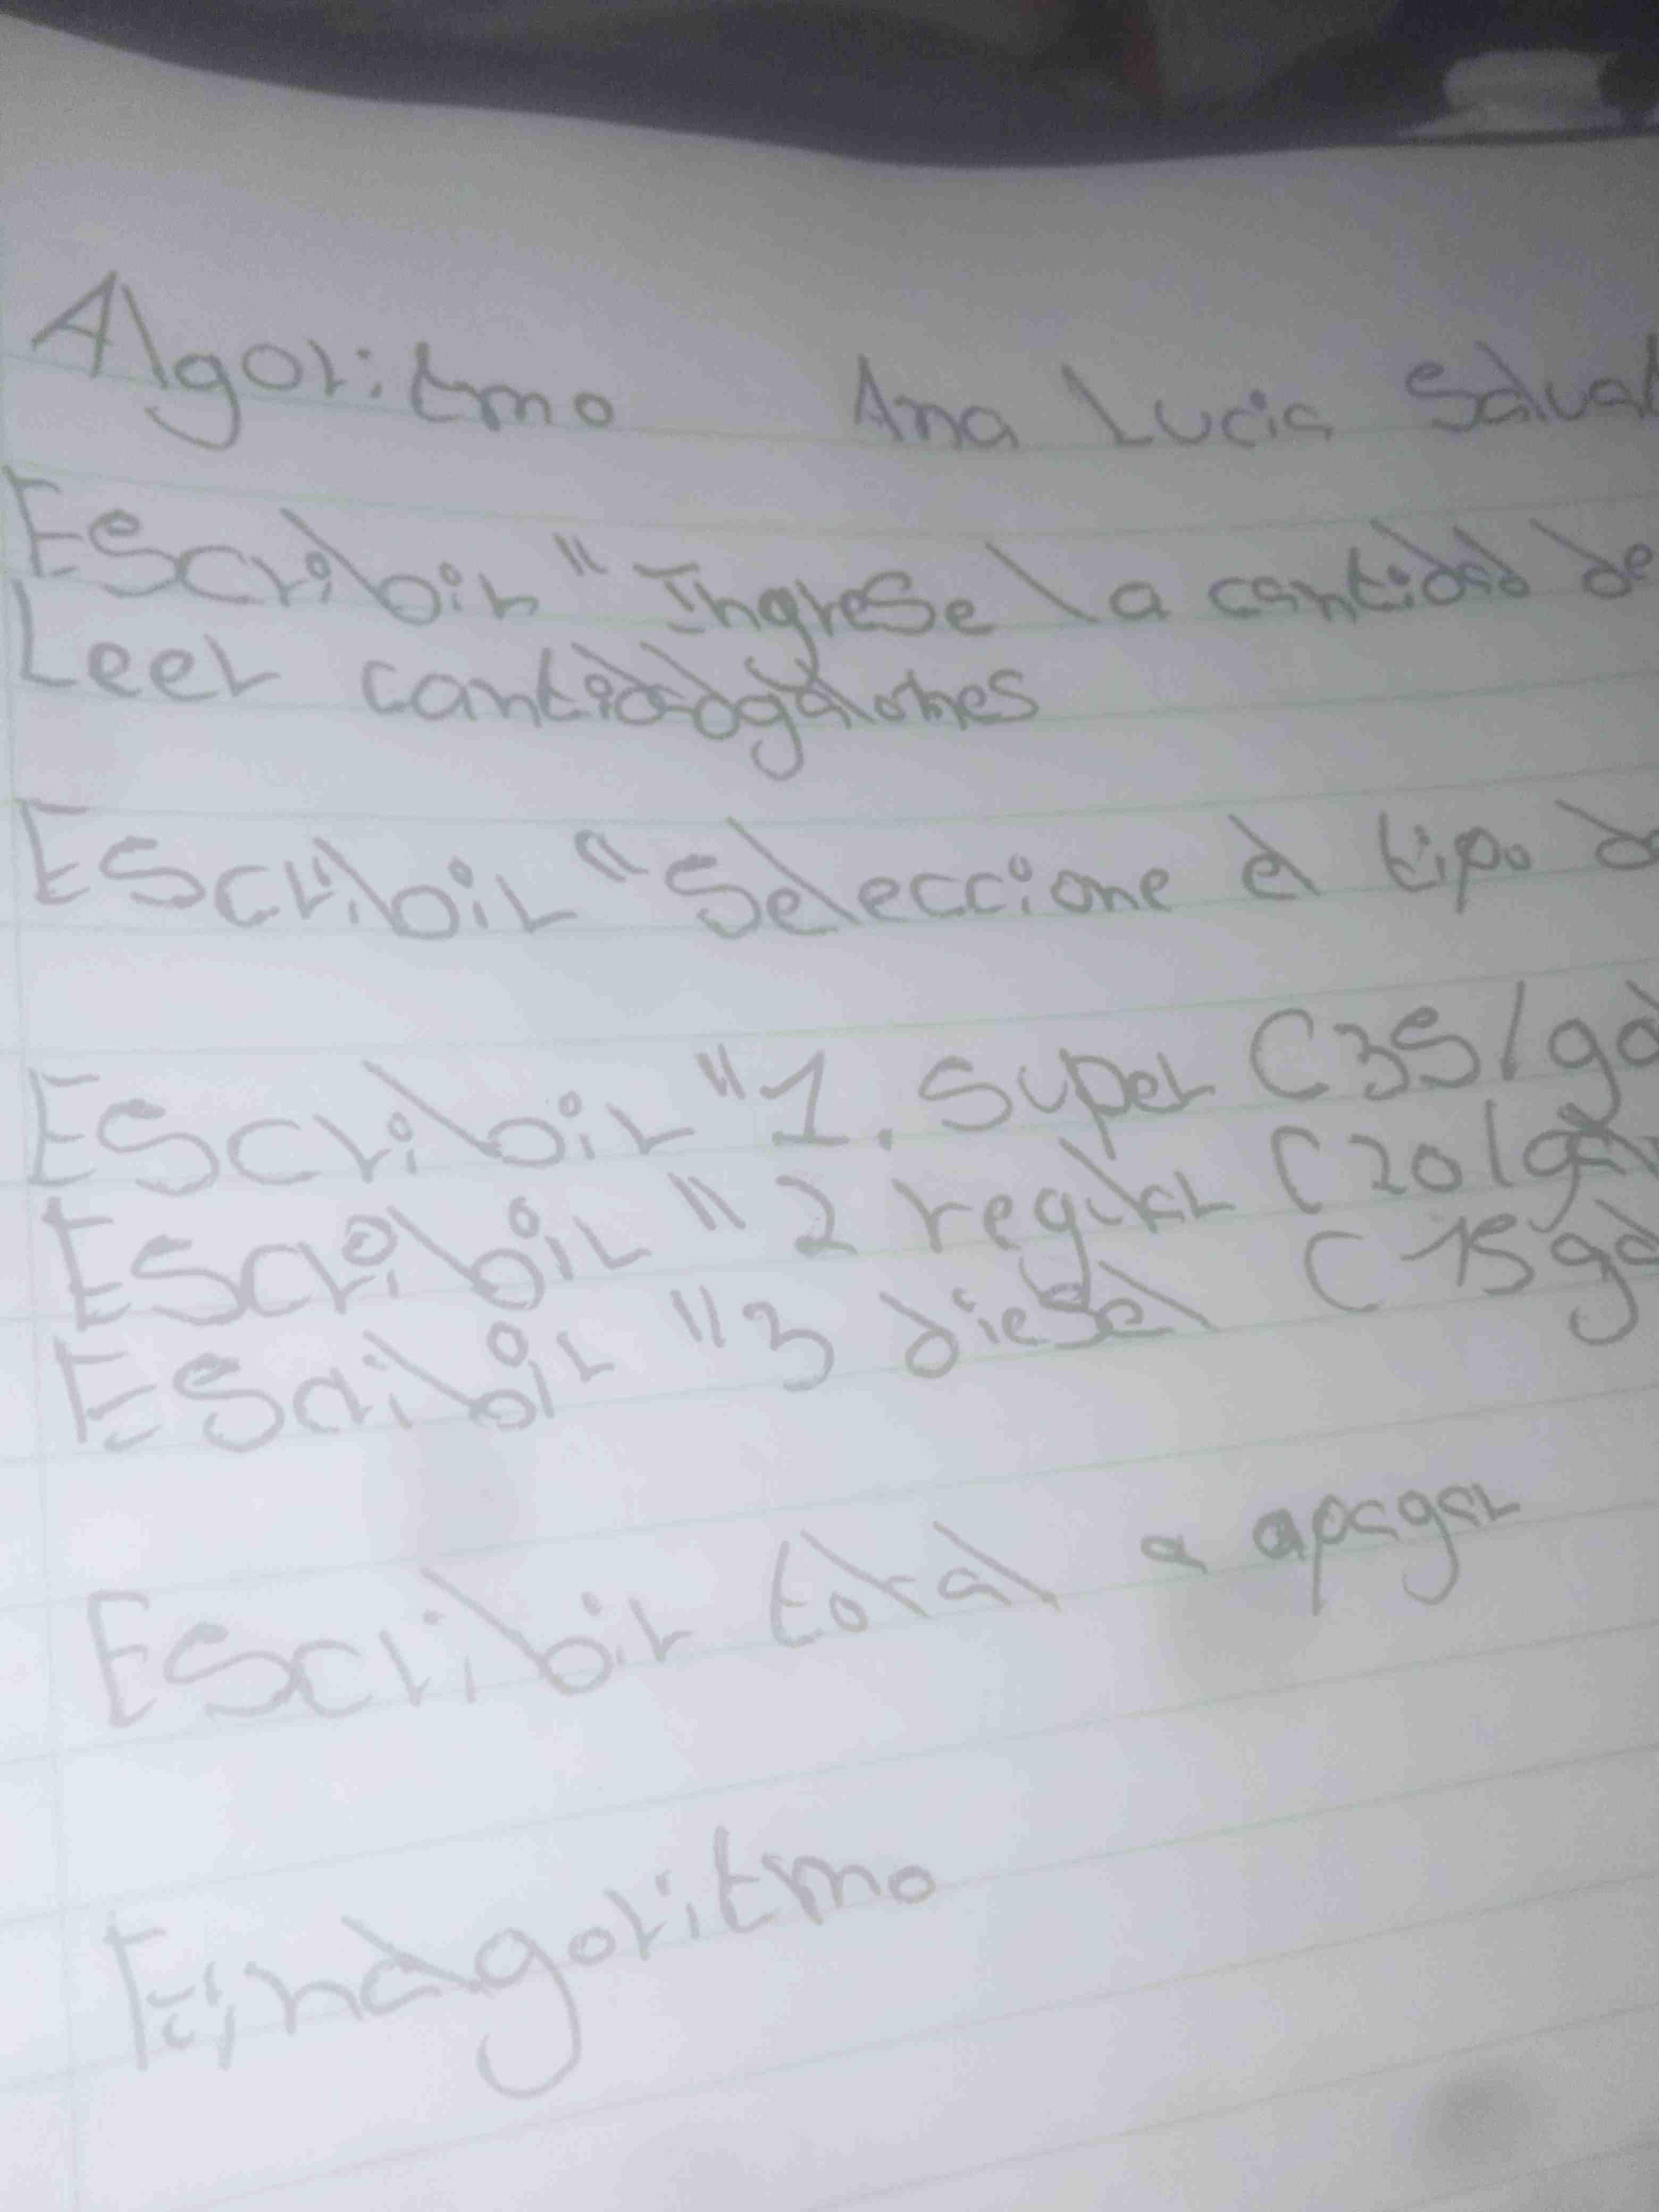 Algoritmo Ana Lucia Salval
Escribir "Ingrese la cantidad de
Leer cantidadgalones
Escribir "Seleccione el tipo de
Escribir "1. Super (35/gal
Escribir "2 regular (20/gal
Escribir "3 diesel (15gal
Escribir total a apagar
Finalgoritmo